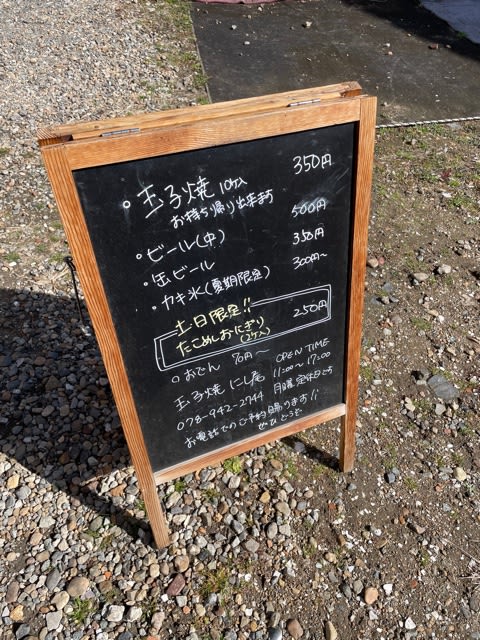 • 玉子焼 10ケ入 350円
お持ち帰り出来ます
• ビール(中) 500円
• 缶ビール 350円
• カキ氷(夏期限定) 300円〜
土日限定!!
たこめしおにぎり(2ケ入) 250円
○ おでん 70円〜
玉子焼 にし尾 OPEN TIME 11:00〜17:00
078-942-2744 月曜定休日です
お電話でのご予約賜ります!!
ぜひどうぞ